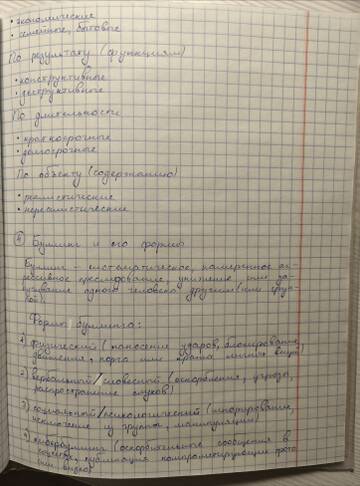 • экономические
• семейные, бытовые
По результату (функциям)
• конструктивные
• деструктивные
По длительности
• краткосрочные
• долгосрочные
По объекту (содержанию)
• реалистические
• нереалистические
Буллинг и его формы
Буллинг - систематическое, намеренное аг-
рессивное преследование, унижение или за-
пугивание одного человека другим (или груп-
пой).
Формы буллинга:
1) физический (нанесение ударов, блокирование
движения, порча или кража личных вещей)
2) вербальный/словесный (оскорбления, угрозы,
распространение слухов)
3) социальный/психологический (игнорирование,
исключение из группы, манипуляции)
4) кибербуллинг (оскорбительные сообщения в
соцсетях, публикация компрометирующих фото
или видео)